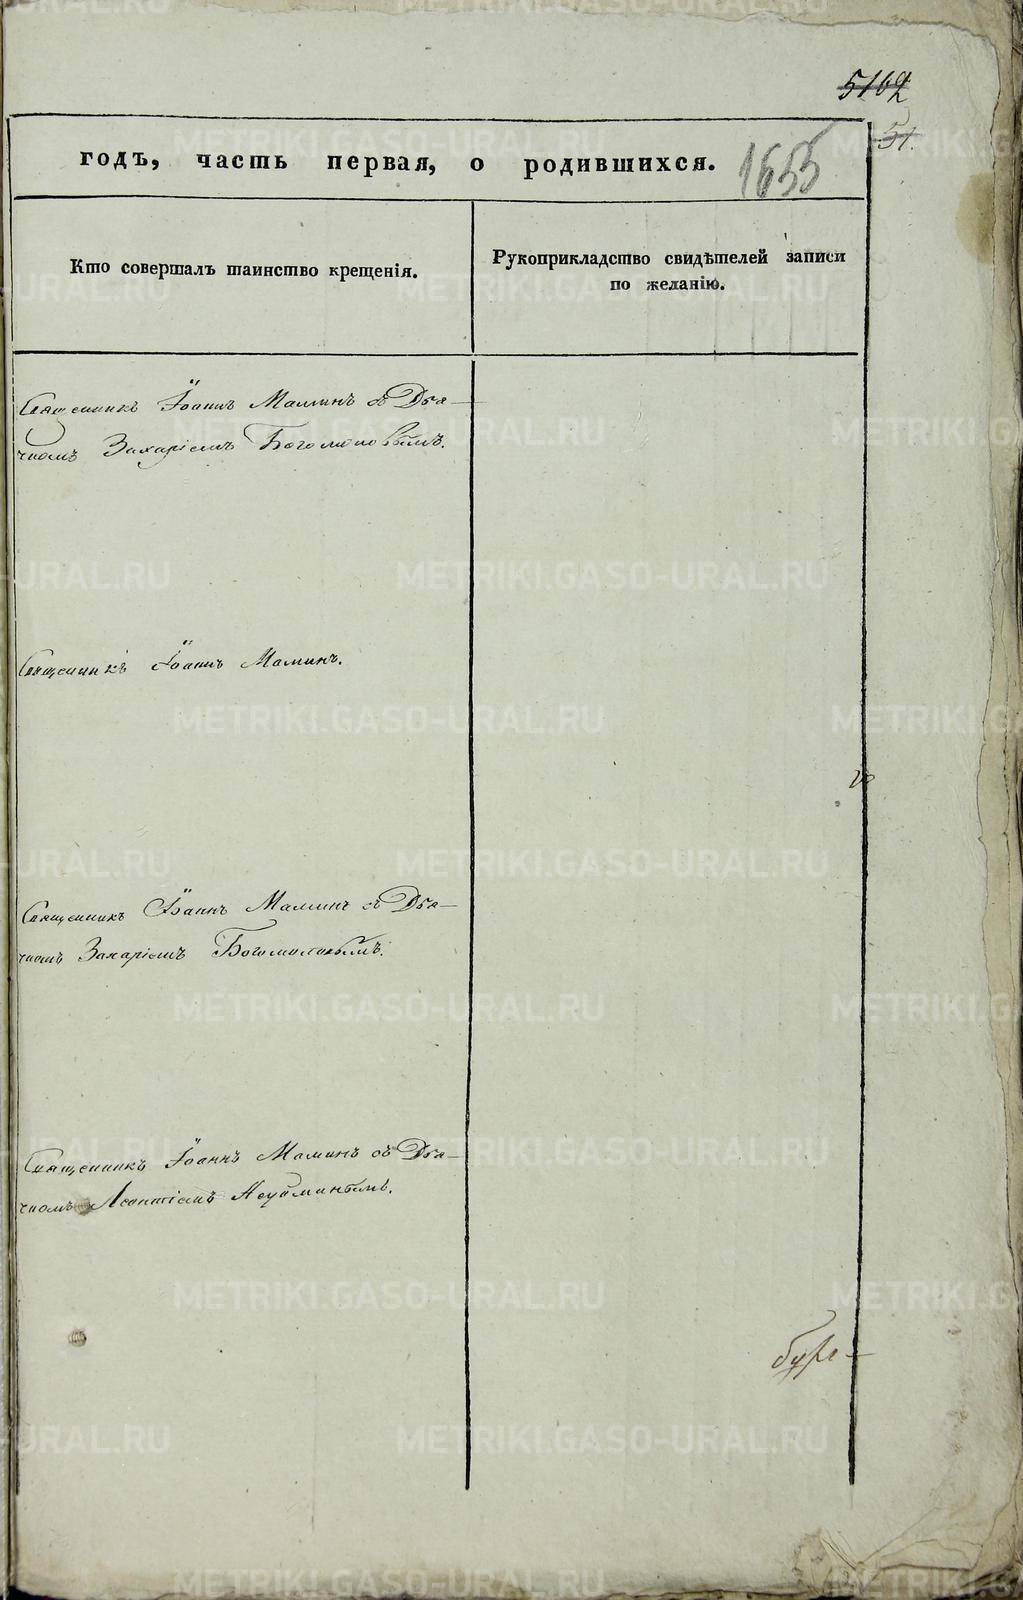 5162
51.
годъ, часть первая, о родившихся. 1655
Кто совершалъ таинство крещенія.
Рукоприкладство свидѣтелей записи
по желанію.
Священникъ Іоаннъ Маминъ съ Дья-
чкомъ Захаріемъ Богомоловымъ.
Священникъ Іоаннъ Маминъ.
Священникъ Іоаннъ Маминъ съ Дья-
чкомъ Захаріемъ Богомоловымъ.
Священникъ Іоаннъ Маминъ съ Дья-
чкомъ Леонтіемъ Неуйминымъ.
METRIKI.GASO-URAL.RU